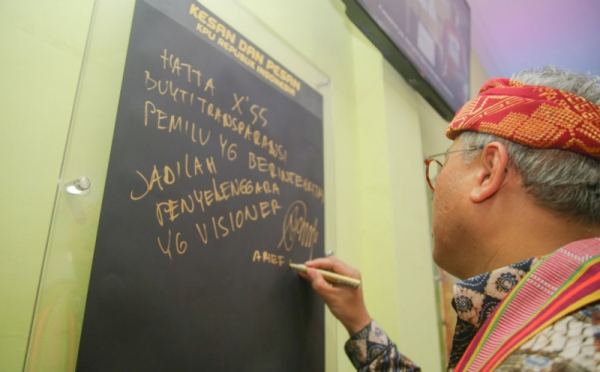 KESAN DAN PESAN
KPU REPUBLIK INDONESIA
HATTA X'55
BUKTI TRANSPARANSI
PEMILU YG BERINTEGRITAS
JADILAH
PENYELENGGARA
YG VISIONER
ARIEF